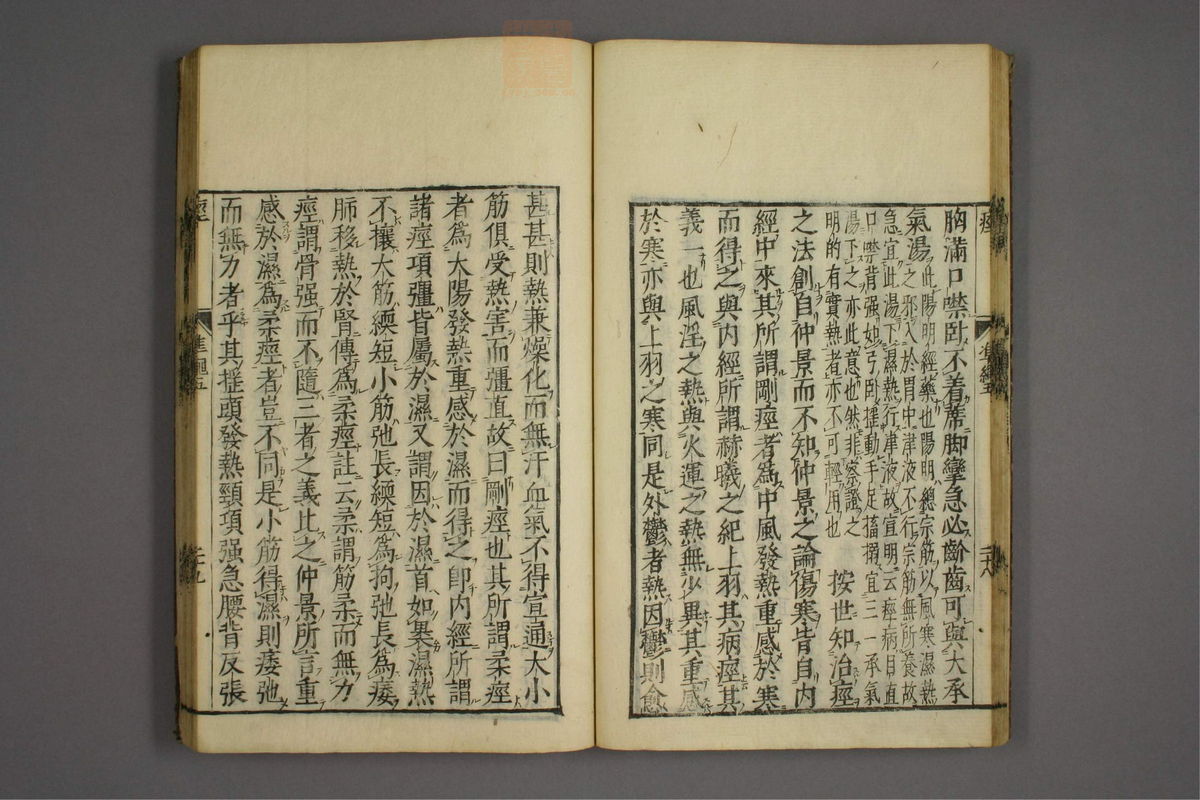 痓
準繩五
二十八
胸滿口噤臥不着蓆脚攣急必齘齒可與大承
氣湯此陽明經藥也陽明總宗筋以風寒濕熱
之邪入於胃中津液不行宗筋無所養故
急宜此湯下濕熱行津液故宜明云痓病目直
口噤背强如弓臥搖動手足搐搦宜三一承氣
湯下之亦此意也然非察證之
明的有實熱者亦不可輕用也
按世知治痓
之法創自仲景而不知仲景之論傷寒皆自内
經中來其所謂剛痓者為中風發熱重感於寒
而得之與内經所謂赫曦之紀上羽其病痓其
義一也風淫之熱與火運之熱無少異其重感
於寒亦與上羽之寒同是外鬱者熱因鬱則愈
甚甚則熱兼燥化而無汗血氣不得宣通大小
筋俱受熱害而彊直故曰剛痓也其所謂柔痓
者為太陽發熱重感於濕而得之即内經所謂
諸痓項彊皆屬於濕又謂因於濕首如裹濕熱
不攘大筋緛短小筋弛長緛短為拘弛長為痿
肺移熱於腎傳為柔痓註云柔謂筋柔而無力
痓謂骨强而不隨三者之義比之仲景所言重
感於濕為柔痓者豈不同是小筋得濕則痿弛
而無力者乎其搖頭發熱頸項强急腰背反張
痓
準繩五
二十九